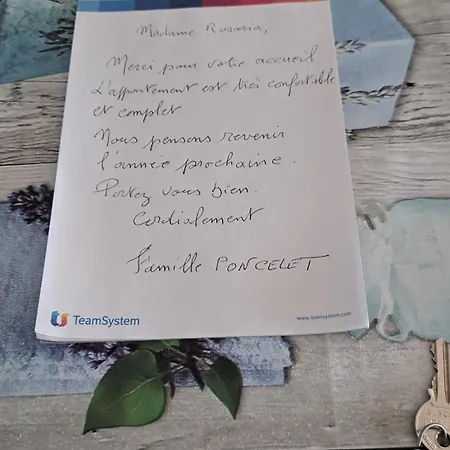 Madame Rosaria,
Merci pour votre accueil
L'appartement est très confortable
et complet
Nous pensons revenir
l'année prochaine.
Portez vous bien.
Cordialement
Famille PONCELET
TeamSystem
www.teamsystem.com